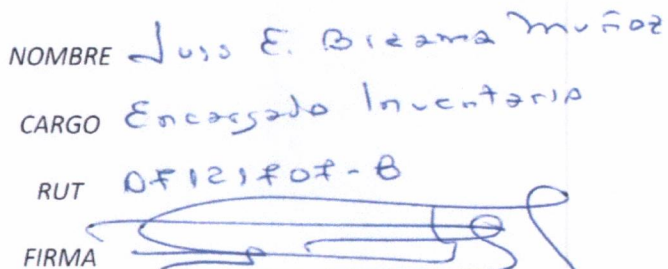 NOMBRE Luis E. Bizama Muñoz
CARGO Encargado Inventario
RUT 07121707-8
FIRMA